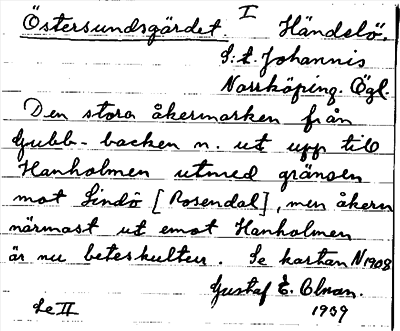 I
Östersundsgärdet. Händelö.
S:t. Johannis
Norrköping. Ögl.
Den stora åkermarken från
Gubb-backen n. ut upp till
Hanholmen utmed gränsen
mot Lindö [Rosendal], men åkern
närmast ut emot Hanholmen
är nu beteskultur. Se kartan N 1908
Gustaf E. Olman.
Se II 1939